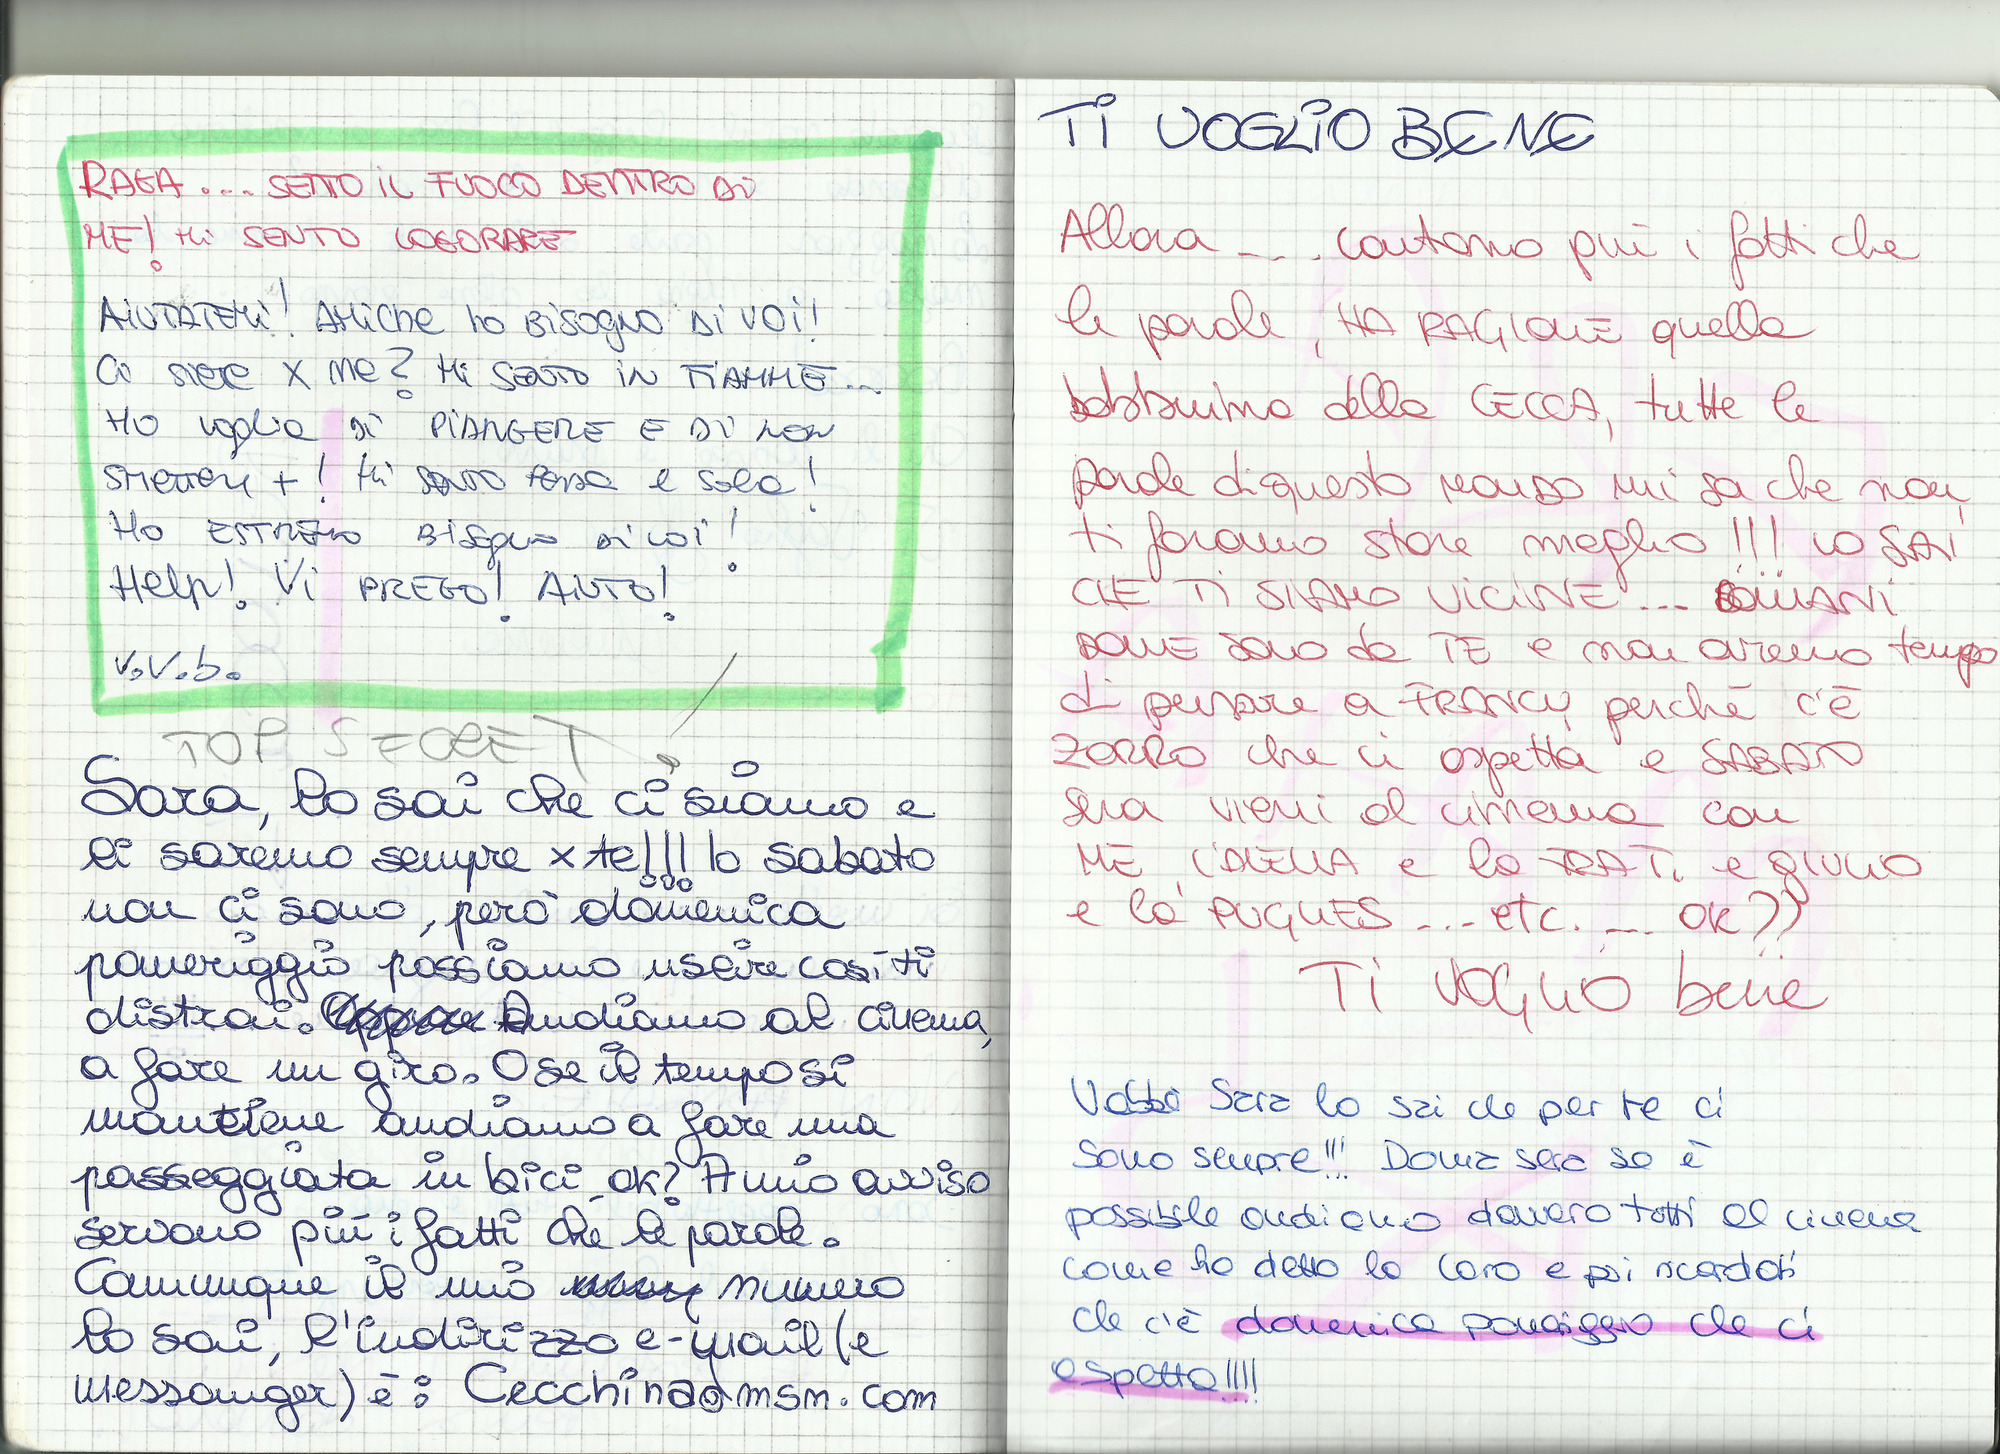 RAGA ... SENTO IL FUOCO DENTRO DI
ME! Mi SENTO LOGORARE
AIUTATEMi! AMiche ho BISOGNO Di VOi!
Ci siete X me? Mi SENTO IN FIAMME...
Ho voglia Di PIANGERE E Di non
smettere +! Mi sento persa e sola!
Ho ESTREMO Bisogno Di voi!
Help! Vi PREGO! AIUTO!
v.v.b.
TOP SECRET
Sara, lo sai che ci siamo e
ci saremo sempre x te!!! Io sabato
non ci sono, però domenica
pomeriggio possiamo uscire così ti
distrai. Andiamo al cinema,
a fare un giro. O se il tempo si
mantiene andiamo a fare una
passeggiata in bici, ok? A mio avviso
servono più i fatti che le parole.
Comunque il mio numero
lo sai, l'indirizzo e-mail (e
messanger) è: Cecchina@msn.com
Ti VOGLIO BENE
Allora ... contano più i fatti che
le parole, HA RAGIONE quella
della CECCA, tutte le
parole di questo mondo mi sa che non
ti faranno stare meglio!!! LO SAI
CHE Ti SIAMO VICINE ... DOMANI
sono da TE e non avremo tempo
di pensare a FRANCY perché c'è
ZORRO che ci aspetta e SABATO
sera vieni al cinema con
ME, e la e GIULIO
e la PUGUES ... etc. ... OK??
Ti VOGLIO bene
Vabbè Sara lo sai che per te ci
sono sempre!!! Doma sera se è
possibile andiamo davvero tutti al cinema
come ha detto la Caro e poi ricordati
che c'è domenica pomeriggio che ci
aspetta!!!!